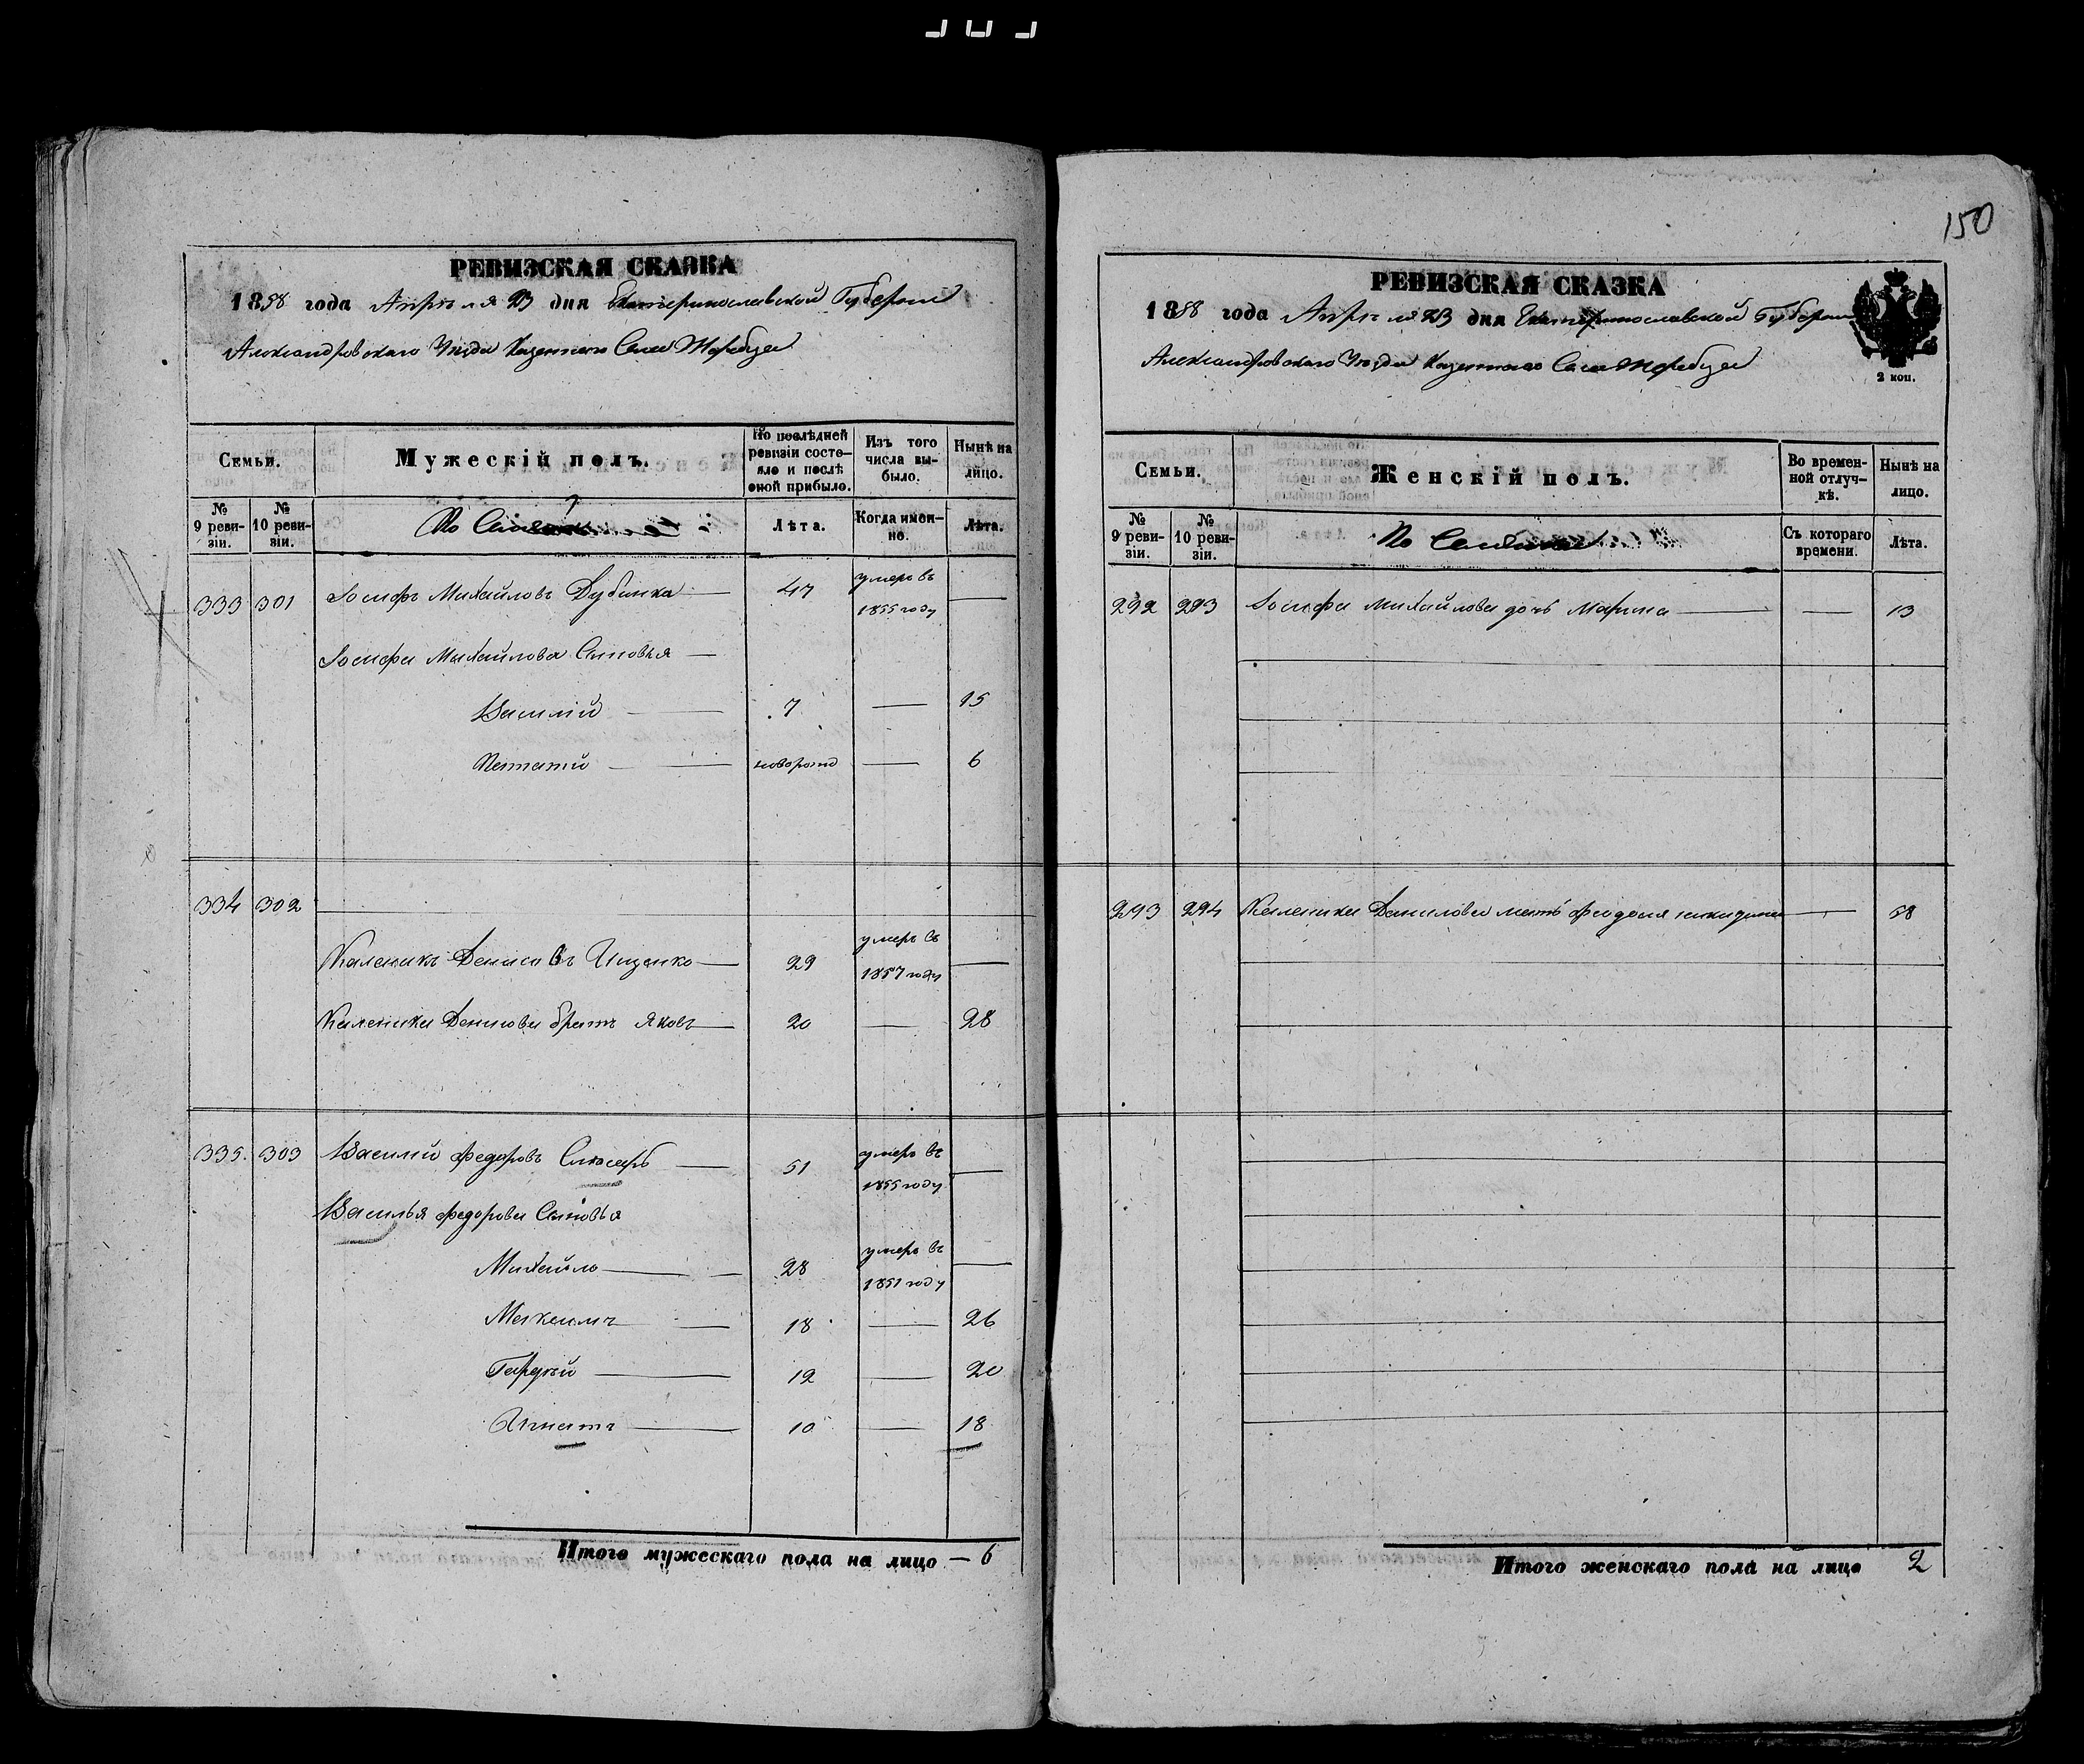 150
РЕВИЗСКАЯ СКАЗКА
1858 года Апрѣля 23 дня Екатеринославской Губернiи
Александровскаго Уѣзда Казеннаго Села Жеребца
Семьи.
Мужескій полъ.
По послѣдней ревизіи состо-яло и послѣ оной прибыло.
Изъ того числа вы-было.
Нынѣ на лицо.
№ 9 реви-зіи.
№ 10 реви-зіи.
По
Лѣта.
Когда имен-но.
Лѣта.
333 301 Іосифъ Михайловъ Дубинка 47 умеръ въ 1855 году
Іосифа Михайлова Сыновья
Василій 7 15
новорож 6
334 302
Каленикъ Денисовъ 29 умеръ въ 1857 году
Каленика Денисова братъ Яковъ 20 28
335. 303 Василій Федоровъ Слюсарь 51 умеръ въ 1855 году
Василья Федорова Сыновья
Михайло 28 умеръ въ 1851 году
Максимъ 18 26
Гордѣй 12 20
Игнатъ 10 18
Итого мужескаго пола на лицо — 6
РЕВИЗСКАЯ СКАЗКА
1858 года Апрѣля 23 дня Екатеринославской Губернiи
Александровскаго Уѣзда Казеннаго Села Жеребца
2 коп.
Семьи.
Женскій полъ.
Во времен-ной отлуч-кѣ.
Нынѣ на лицо.
№ 9 реви-зіи.
№ 10 реви-зіи.
По
Съ котораго времени.
Лѣта.
292 293 Іосифа Михайлова дочь Марина 13
293 294 Каленика мать 58
Итого женскаго пола на лицо 2